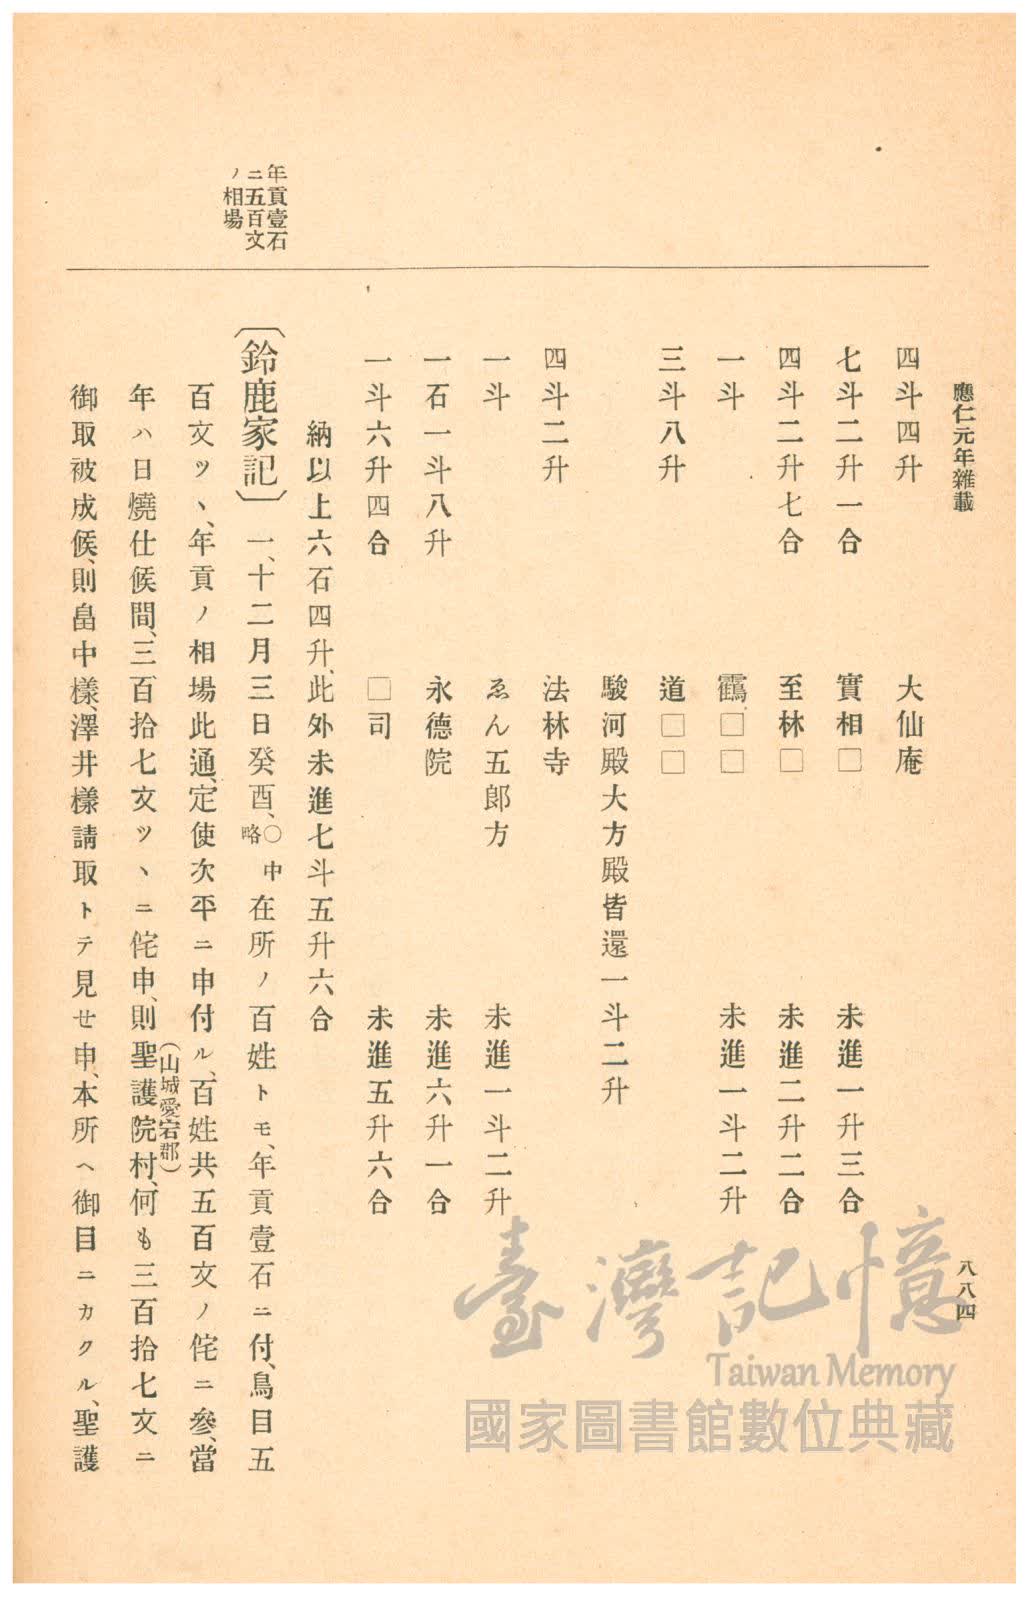 應仁元年雜載
八八四
四斗四升 大仙庵
七斗二升一合 實相□ 未進一升三合
四斗二升七合 至林□ 未進二升二合
一斗 靍□□ 未進一斗二升
三斗八升 道□□
駿河殿大方殿皆還一斗二升
四斗二升 法林寺
一斗 ゑん五郎方 未進一斗二升
一石一斗八升 永德院 未進六升一合
一斗六升四合 □司 未進五升六合
納以上六石四升、此外未進七斗五升六合
年貢壹石
ニ五百文
ノ相場
〔鈴鹿家記〕 一、十二月三日癸酉、○中略 在所ノ百姓トモ、年貢壹石ニ付、鳥目五
百文ツヽ、年貢ノ相場此通、定使次平ニ申付ル、百姓共五百文ノ侘ニ參、當
年ハ日燒仕候間、三百拾七文ツヽニ侘申、則聖護院村、何も三百拾七文ニ
(山城愛宕郡)
御取被成候、則畠中樣、澤井樣請取トテ見せ申、本所ヘ御目ニカクル、聖護
臺灣記憶
Taiwan Memory
國家圖書館數位典藏